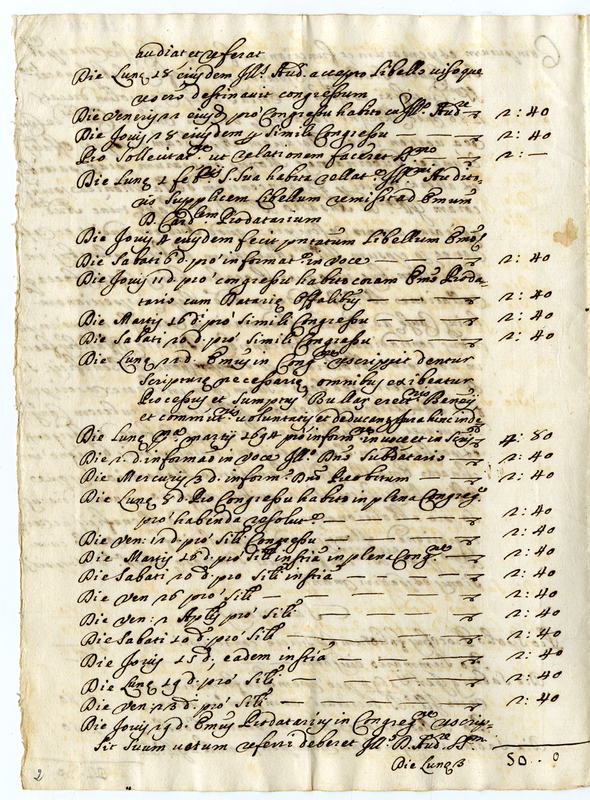 audiat et referat
Die Lunę 18 eiusdem Ill. Aud. accepto Libello uisoque
uero destinauit congressum
Die Veneris 22 eiusd. pro Congressu habito Ill. Aud. 2:40
Die Jouis 28 eiusdem p simili Congressu 2:40
Pro sollecitat. ut relationem faceret 2:—
Die Lunę 1 feb. S. Sua habita rellat. Audito-
ris Supplicem Libellum remisit ad Emum
D. Card. Prodatarium
Die Jouis 4 eiusdem fecit pntatum Libellum Emo
Die Sabati 6 d. pro informat. in Voce 2:40
Die Jouis 11 d. pro congressu habito coram Emo Proda-
tario cum Datarię Offalibus 2:40
Die Martis 16 d. pro simili Congressu 2:40
Die Sabati 20 d. pro simili Congressu 2:40
Die Lunę 22 d. Emus in Cong. rescripsit dentur
scripturę necessarię omnibus exibeatur
Processus et sumptus Bullar. erect. Benej
et commut. voluntatis et deducant iura hinc inde
Die Lunę martij 1694 pro inform. in uoce et in 4:80
Die 2 d. informao in Voce Ill. Dno Subdatario 2:40
Die Mercurij 3 d. inform. Dno 2:40
Die Lunę 8 d. Pro Congressu habito in plena Congreg.
pro habenda resolut. 2:40
Die Ven: 12 d. pro sili Congressu 2:40
Die Martis 16 d. pro sili instria in plena Cong. 2:40
Die Sabati 20 d. pro sili instria 2:40
Die Ven 26 pro sili 2:40
Die Ven: 2 Aplis pro sili 2:40
Die Sabati 10 d. pro sili 2:40
Die Jouis 15 d, eadem instria 2:40
Die Lunę 19 d. pro sili 2:40
Die Ven: 23 d. pro sili 2:40
Die Jouis 29 d. Emus Prodatarius in Congreg. rescrip-
sit suum uotum referri deberet Ill. D. Aud.
Die Lunę 3 50.0
2